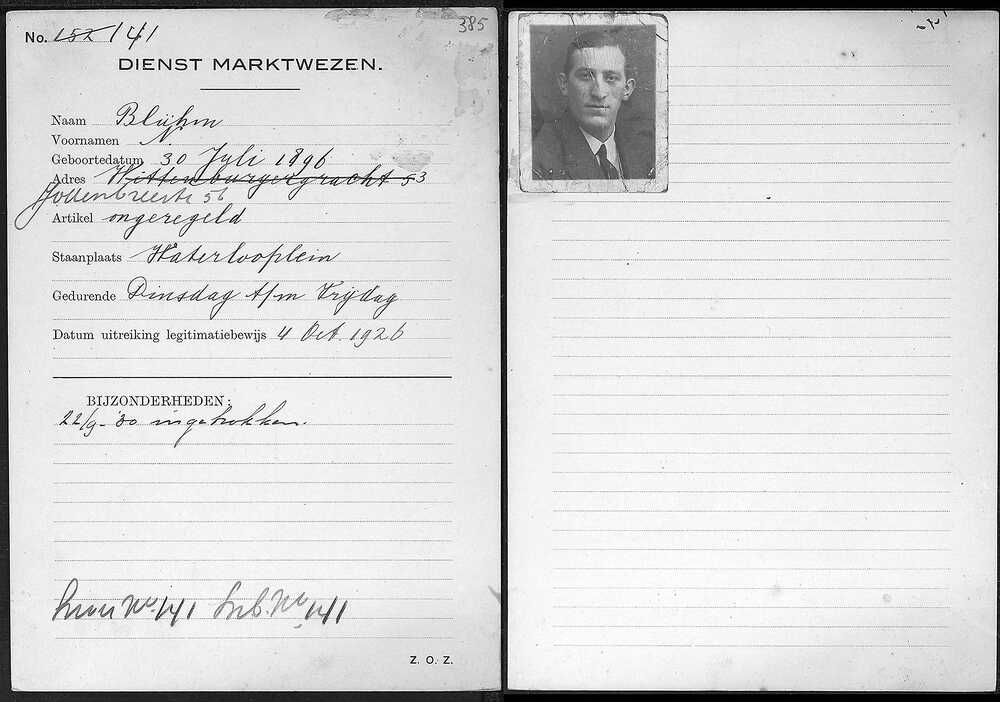 385
No. 152 141
DIENST MARKTWEZEN.
Naam Blühm
Voornamen N
Geboortedatum 30 Juli 1896
Adres Wittenburgergracht 53
Jodenbreestr 56
Artikel ongeregeld
Staanplaats Waterlooplein
Gedurende Dinsdag t/m Vrijdag
Datum uitreiking legitimatiebewijs 4 Oct. 1926
BIJZONDERHEDEN:
22/9-'30 ingetrokken.
No. 141 No 141
Z. O. Z.